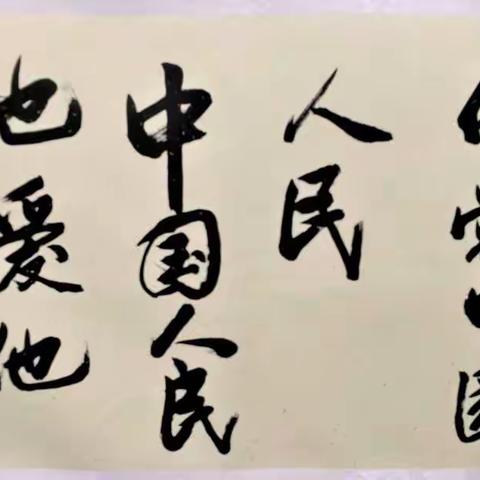 人民
中国人民
也爱他